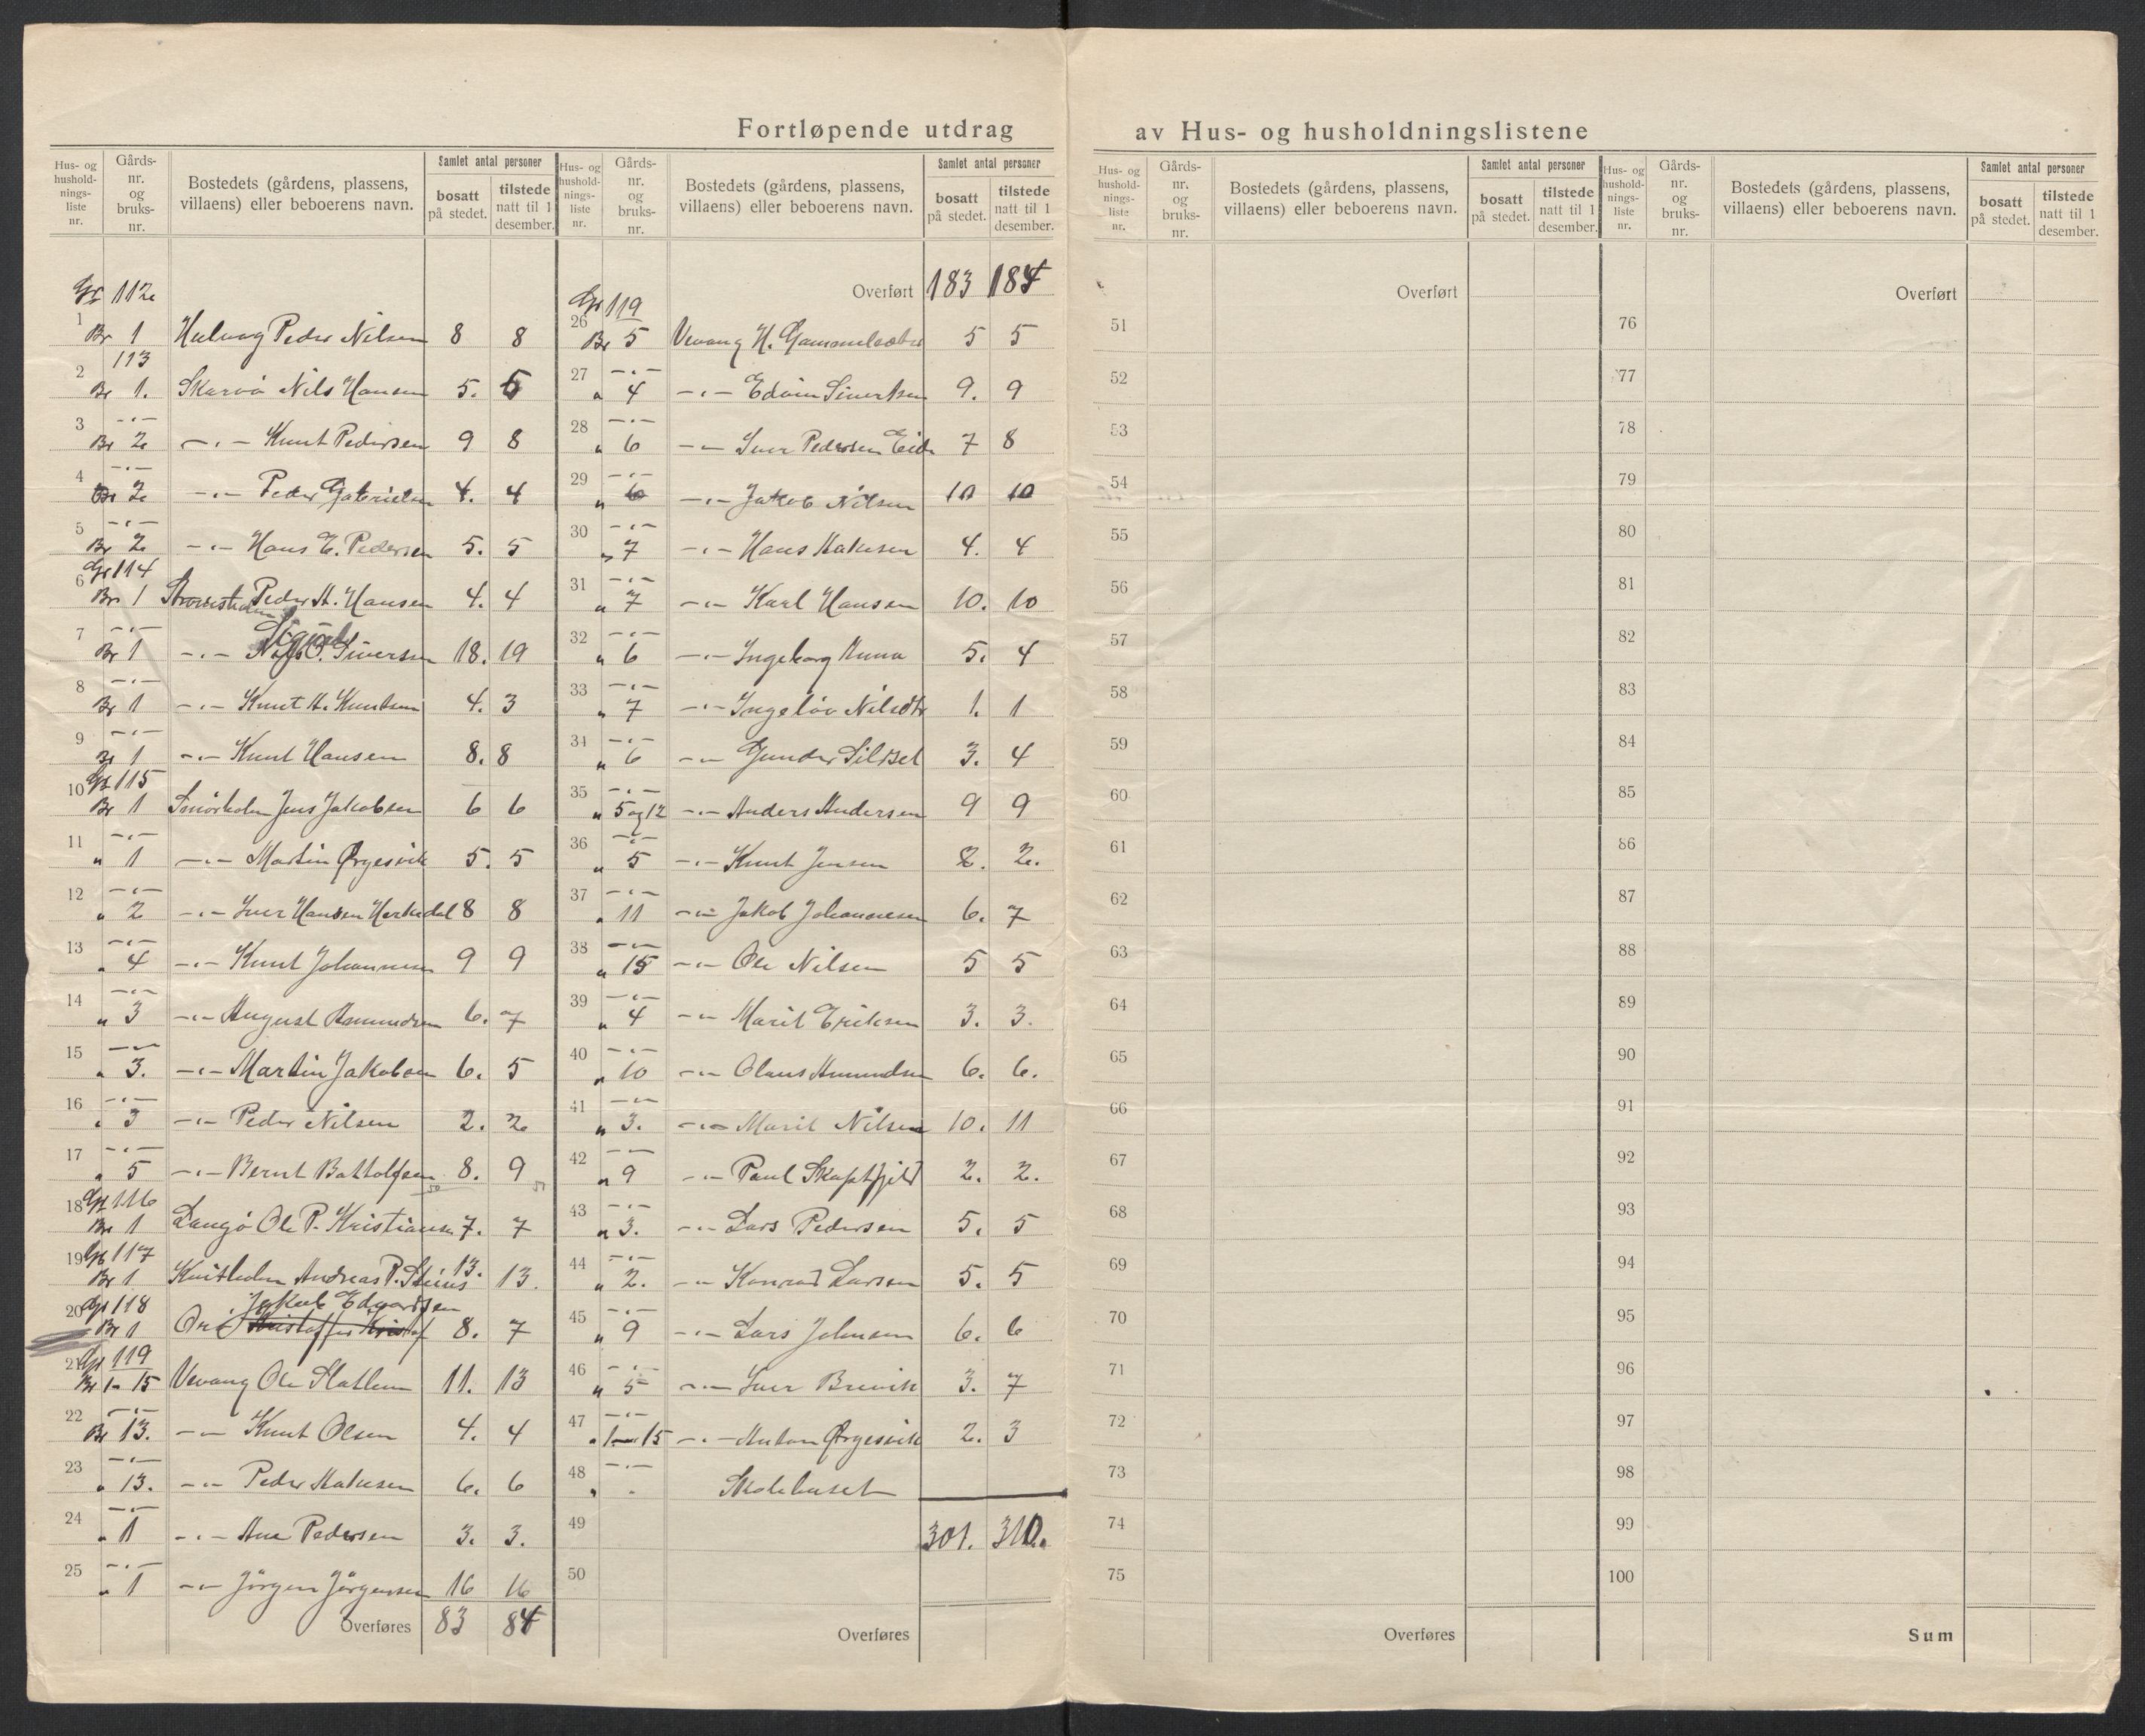 Fortløpende utdrag av Hus- og husholdningslistene
Hus- og hushold-nings-liste nr. | Gårds-nr. og bruks-nr. | Bostedets (gårdens, plassens, villaens) eller beboerens navn. | Samlet antal personer | bosatt på stedet. | tilstede natt til 1 desember.
Gr 112
1 Br 1 Peder Nilsen 8 8
113
2 Br 1. Nils Hansen 5. 5
3 Br 2 -"- Knut Pedersen 9 8
4 Br 2 -"- Peder Gabrielsen 4. 4
5 Br 2 -"- Hans E. Pedersen 5. 5
Gr 114
6 Br 1 Peder A. Hansen 4. 4
7 Br 1 -"- Siversen 18. 19
8 Br 1 -"- Knut A. Knutsen 4. 3
9 Br 1 -"- Knut Hansen 8. 8
Gr 115
10 Br 1 Smörholm Jens Jakobsen 6 6
11 " 1 -"- Martin Ørjesvik 5. 5
12 " 2 -"- Iver Hansen 8 8
13 " 4 -"- Knut Johannesen 9 9
14 " 3 -"- August Asmundsen 6. 7
15 " 3. -"- Martin Jakobsen 6. 5
16 " 3 -"- Peder Nilsen 2. 2
17 " 5 -"- Bernt Battolfsen 8. 9
Gr 116
18 Br 1 Langö Ole P. Kristiansen 7. 7
Gr 117
19 Br 1 Kvitholm Andreas P. 13. 13.
Gr 118 Jakob Edvardsen
20 Br 1 8. 7
Gr 119
21 Br 1-15 Vevang Ole Slatlem 11. 13
22 Br 13. -"- Knut Olsen 4. 4
23 " 13. -"- Peder Hakesen 6. 6
24 " 1 -"- Ane Pedersen 3. 3.
25 " 1 -"- Jörgen Jörgensen 16 16
Overføres 83 84
Hus- og hushold-nings-liste nr. | Gårds-nr. og bruks-nr. | Bostedets (gårdens, plassens, villaens) eller beboerens navn. | Samlet antal personer | bosatt på stedet. | tilstede natt til 1 desember.
Overført 183 184
Gr 119
26 Br 5 Vevang H. 5 5
27 " 4 -"- Edvin Sivertsen 9. 9
28 " 6 -"- Iver Pedersen Eide 7 8
29 " 6 -"- Jakob Nilsen 10 10
30 " 7 -"- Hans Hakesen 4. 4
31 " 7 -"- Karl Hansen 10. 10
32 " 6 -"- Ingeborg Anna 5. 4
33 " 7 -"- Nilsdtr 1. 1
34 " 6 -"- Gunder Silset 3. 4
35 " 5 og 12 -"- Anders Andersen 9 9
36 " 5 -"- Knut Jensen 2. 2.
37 " 11 -"- Jakob Johannesen 6. 7
38 " 15 -"- Ole Nilsen 5 5
39 " 4 -"- Marit Eriksen 3. 3.
40 " 10 -"- Olaus Amundsen 6. 6.
41 " 3. -"- Marit Nilsen 10. 11
42 " 9 -"- Paul 2. 2.
43 " 3. -"- Lars Pedersen 5. 5
44 " 2. -"- Konrad Larsen 5. 5
45 " 9 -"- Lars Johnsen 6. 6
46 " 5 -"- Iver Brevik 3. 7
47 " 1-15 -"- Anton Ørjesvik 2. 3
48 " " Skolehuset
49 301. 310.
50
Overføres
Hus- og hushold-nings-liste nr. | Gårds-nr. og bruks-nr. | Bostedets (gårdens, plassens, villaens) eller beboerens navn. | Samlet antal personer | bosatt på stedet. | tilstede natt til 1 desember.
Overført
51
52
53
54
55
56
57
58
59
60
61
62
63
64
65
66
67
68
69
70
71
72
73
74
75
Overføres
Hus- og hushold-nings-liste nr. | Gårds-nr. og bruks-nr. | Bostedets (gårdens, plassens, villaens) eller beboerens navn. | Samlet antal personer | bosatt på stedet. | tilstede natt til 1 desember.
Overført
76
77
78
79
80
81
82
83
84
85
86
87
88
89
90
91
92
93
94
95
96
97
98
99
100
Sum